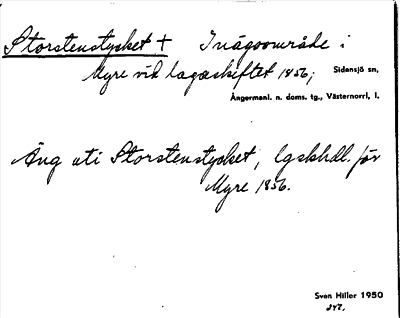 Storstenstycket + Inägoområde i
Myre vid lagaskiftet 1856; Sidensjö sn,
Ångermanl. n. doms. tg., Västernorrl, l.
Äng uti Storstenstycket, lgskhdl. för
Myre 1856.
Sven Hiller 1950
247,